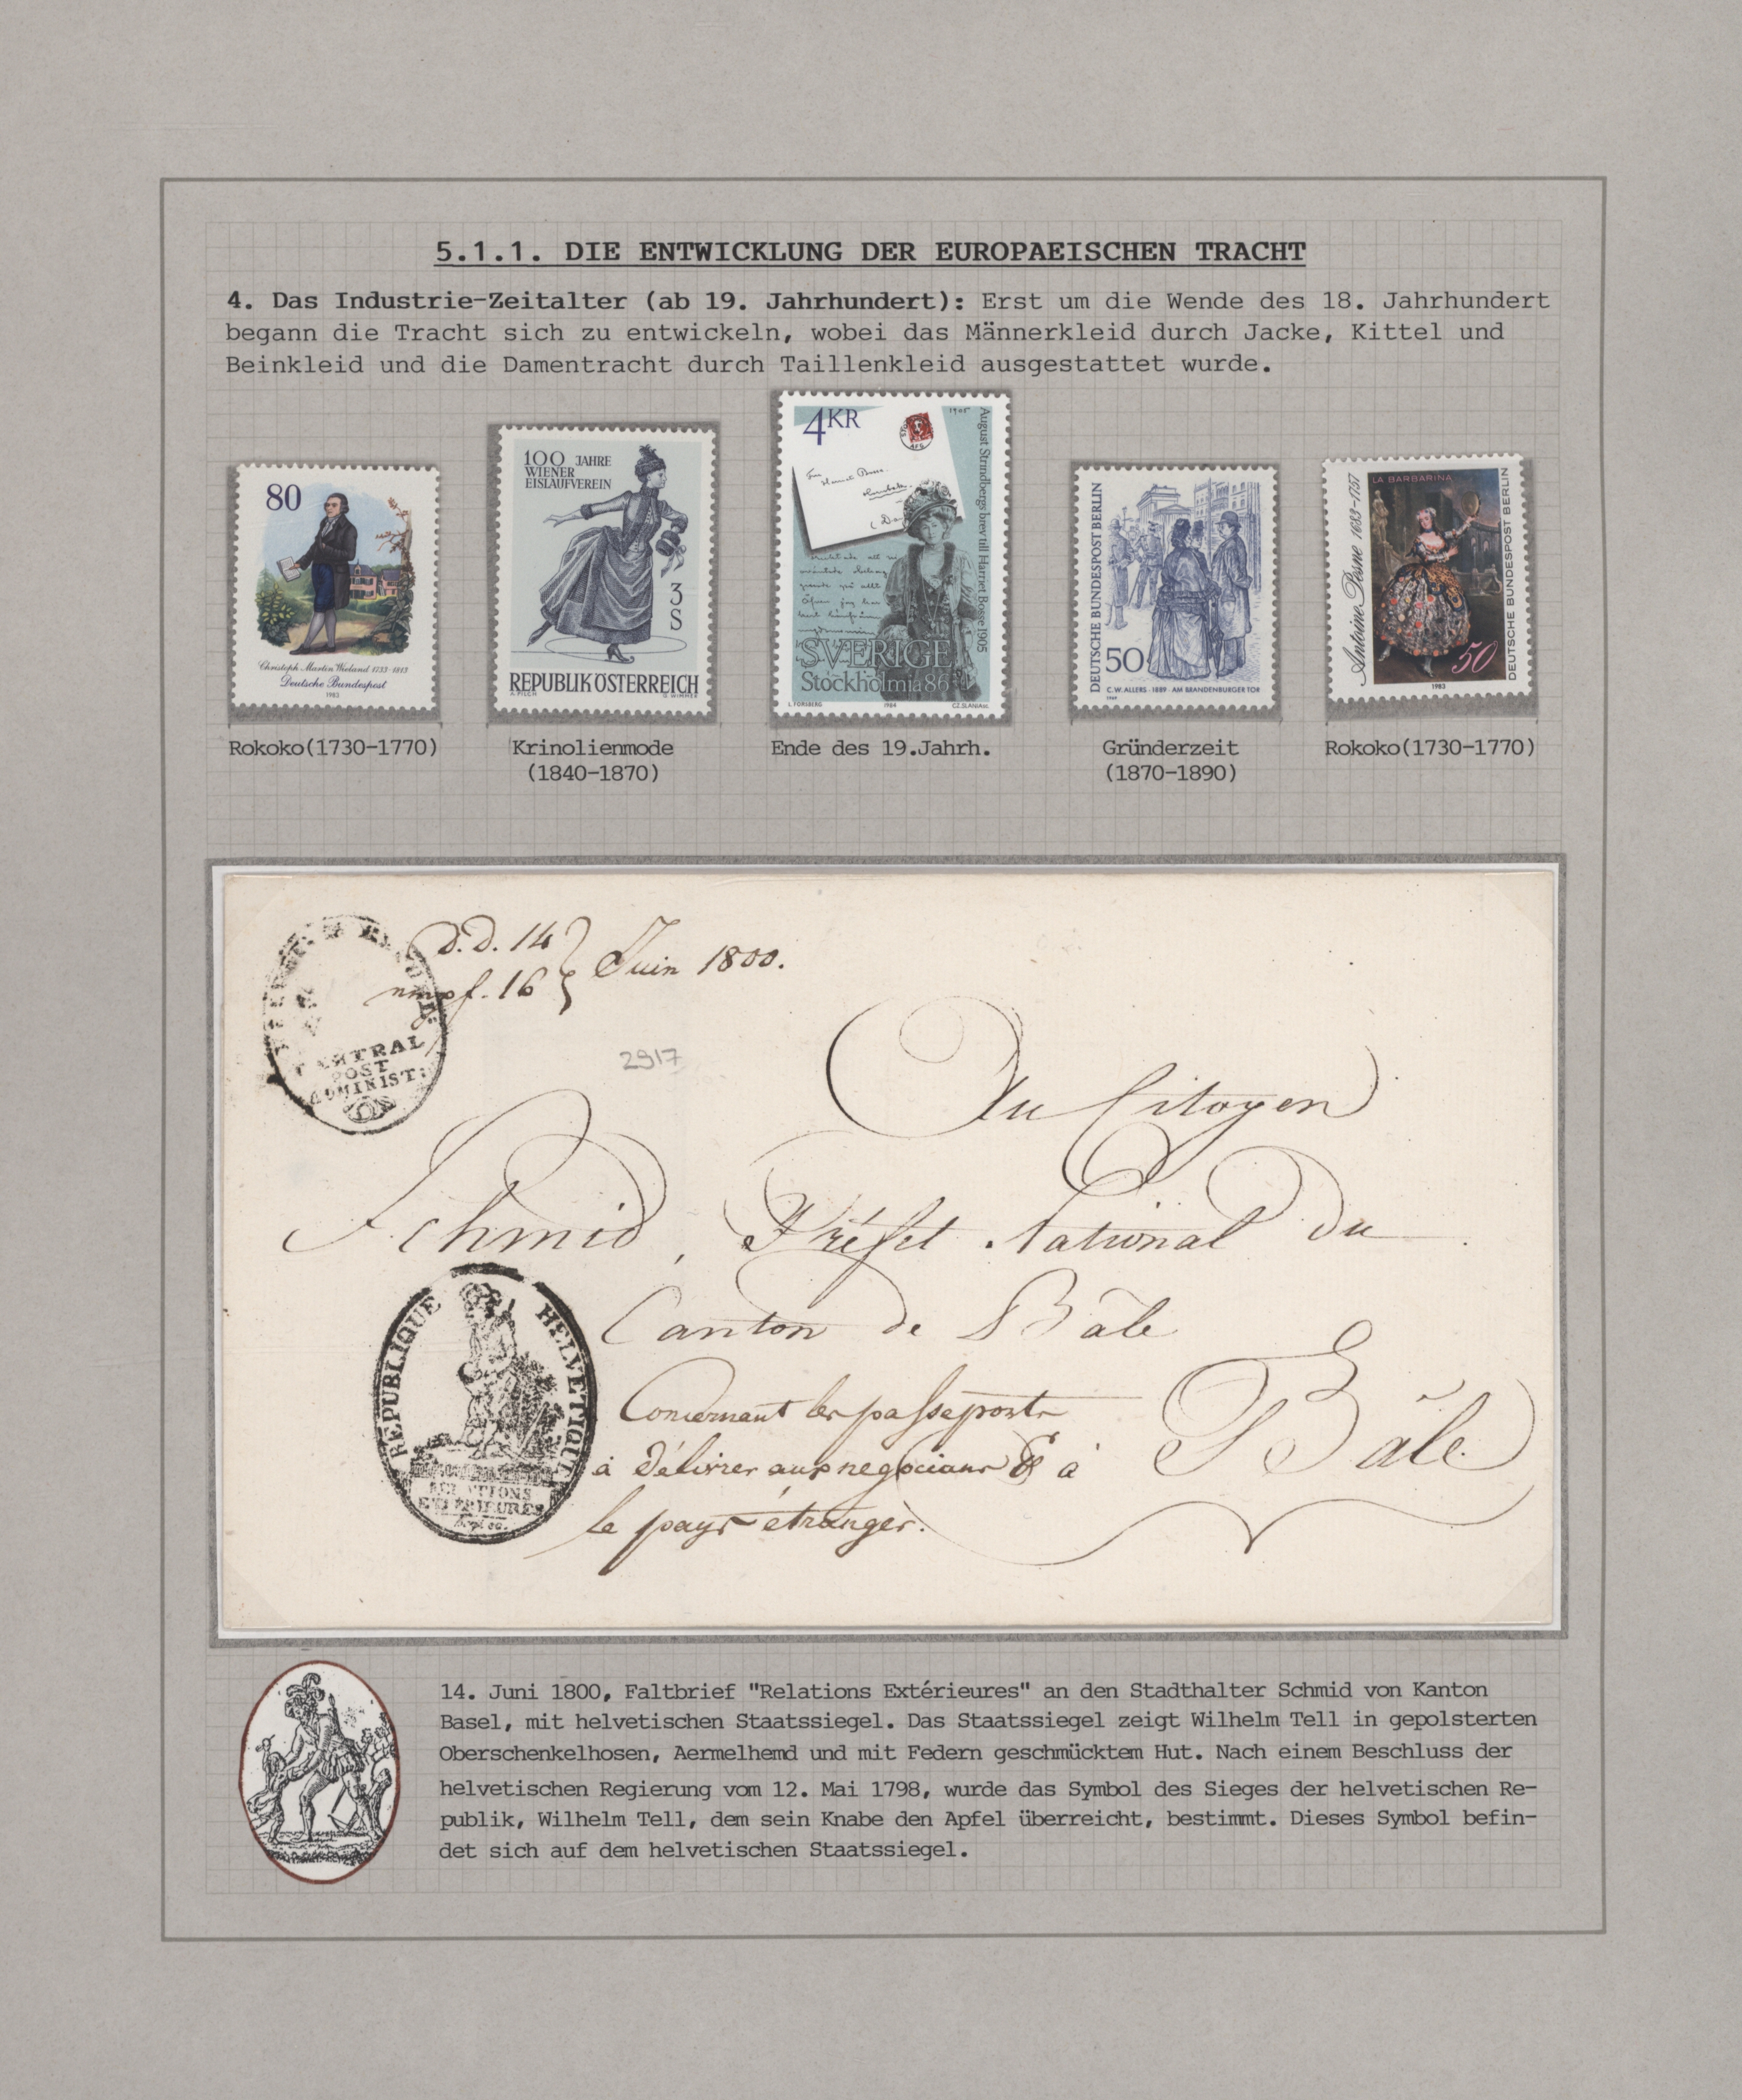 5.1.1. DIE ENTWICKLUNG DER EUROPAEISCHEN TRACHT
4. Das Industrie-Zeitalter (ab 19. Jahrhundert): Erst um die Wende des 18. Jahrhundert
begann die Tracht sich zu entwickeln, wobei das Männerkleid durch Jacke, Kittel und
Beinkleid und die Damentracht durch Taillenkleid ausgestattet wurde.
80
Christoph Martin Wieland 1733-1813
Deutsche Bundespost
1983
100 JAHRE
WIENER
EISLAUFVEREIN
3
S
REPUBLIK ÖSTERREICH
A. PILCH
G. WIMMER
4KR
1905
August Strindbergs brev till Harriet Bosse 1905
SVERIGE
Stockholmia 86
L. FORSBERG 1984 CZ. SLANIA sc.
DEUTSCHE BUNDESPOST BERLIN
50
C.W. ALLERS · 1889 · AM BRANDENBURGER TOR
1969
Antoine Pesne 1683-1757
LA BARBARINA
50
DEUTSCHE BUNDESPOST BERLIN
1983
Rokoko(1730-1770)
Krinolienmode
(1840-1870)
Ende des 19.Jahrh.
Gründerzeit
(1870-1890)
Rokoko(1730-1770)
d.d. 14
16
Juin 1800.
CENTRAL
POST
ADMINIST:
2917
Au Citoyen
Schmid, Préfet National du
Canton de Bâle
REPUBLIQUE HELVETIQUE
RELATIONS
EXTERIEURES
Concernant les passeports
à délivrer aux negocians & à
le pays étranger.
Bâle.
14. Juni 1800, Faltbrief "Relations Extérieures" an den Stadthalter Schmid von Kanton
Basel, mit helvetischen Staatssiegel. Das Staatssiegel zeigt Wilhelm Tell in gepolsterten
Oberschenkelhosen, Aermelhemd und mit Federn geschmücktem Hut. Nach einem Beschluss der
helvetischen Regierung vom 12. Mai 1798, wurde das Symbol des Sieges der helvetischen Re-
publik, Wilhelm Tell, dem sein Knabe den Apfel überreicht, bestimmt. Dieses Symbol befin-
det sich auf dem helvetischen Staatssiegel.